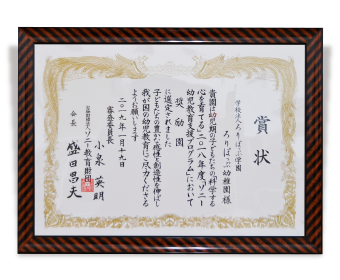 賞状
学校法人ろりぽっぷ学園
ろりぽっぷ幼稚園様
貴園は幼児期の子どもたちの「科学する
心を育てる」二〇一八年度「ソニー
幼児教育支援プログラム」において
奨励園
に選定されました
子どもたちの豊かな感性と創造性を伸ばし
我が国の幼児教育にご尽力くださる
ようお願いします
二〇一九年一月十九日
審査委員長
小泉英明
公益財団法人ソニー教育財団
会長
盛田昌夫